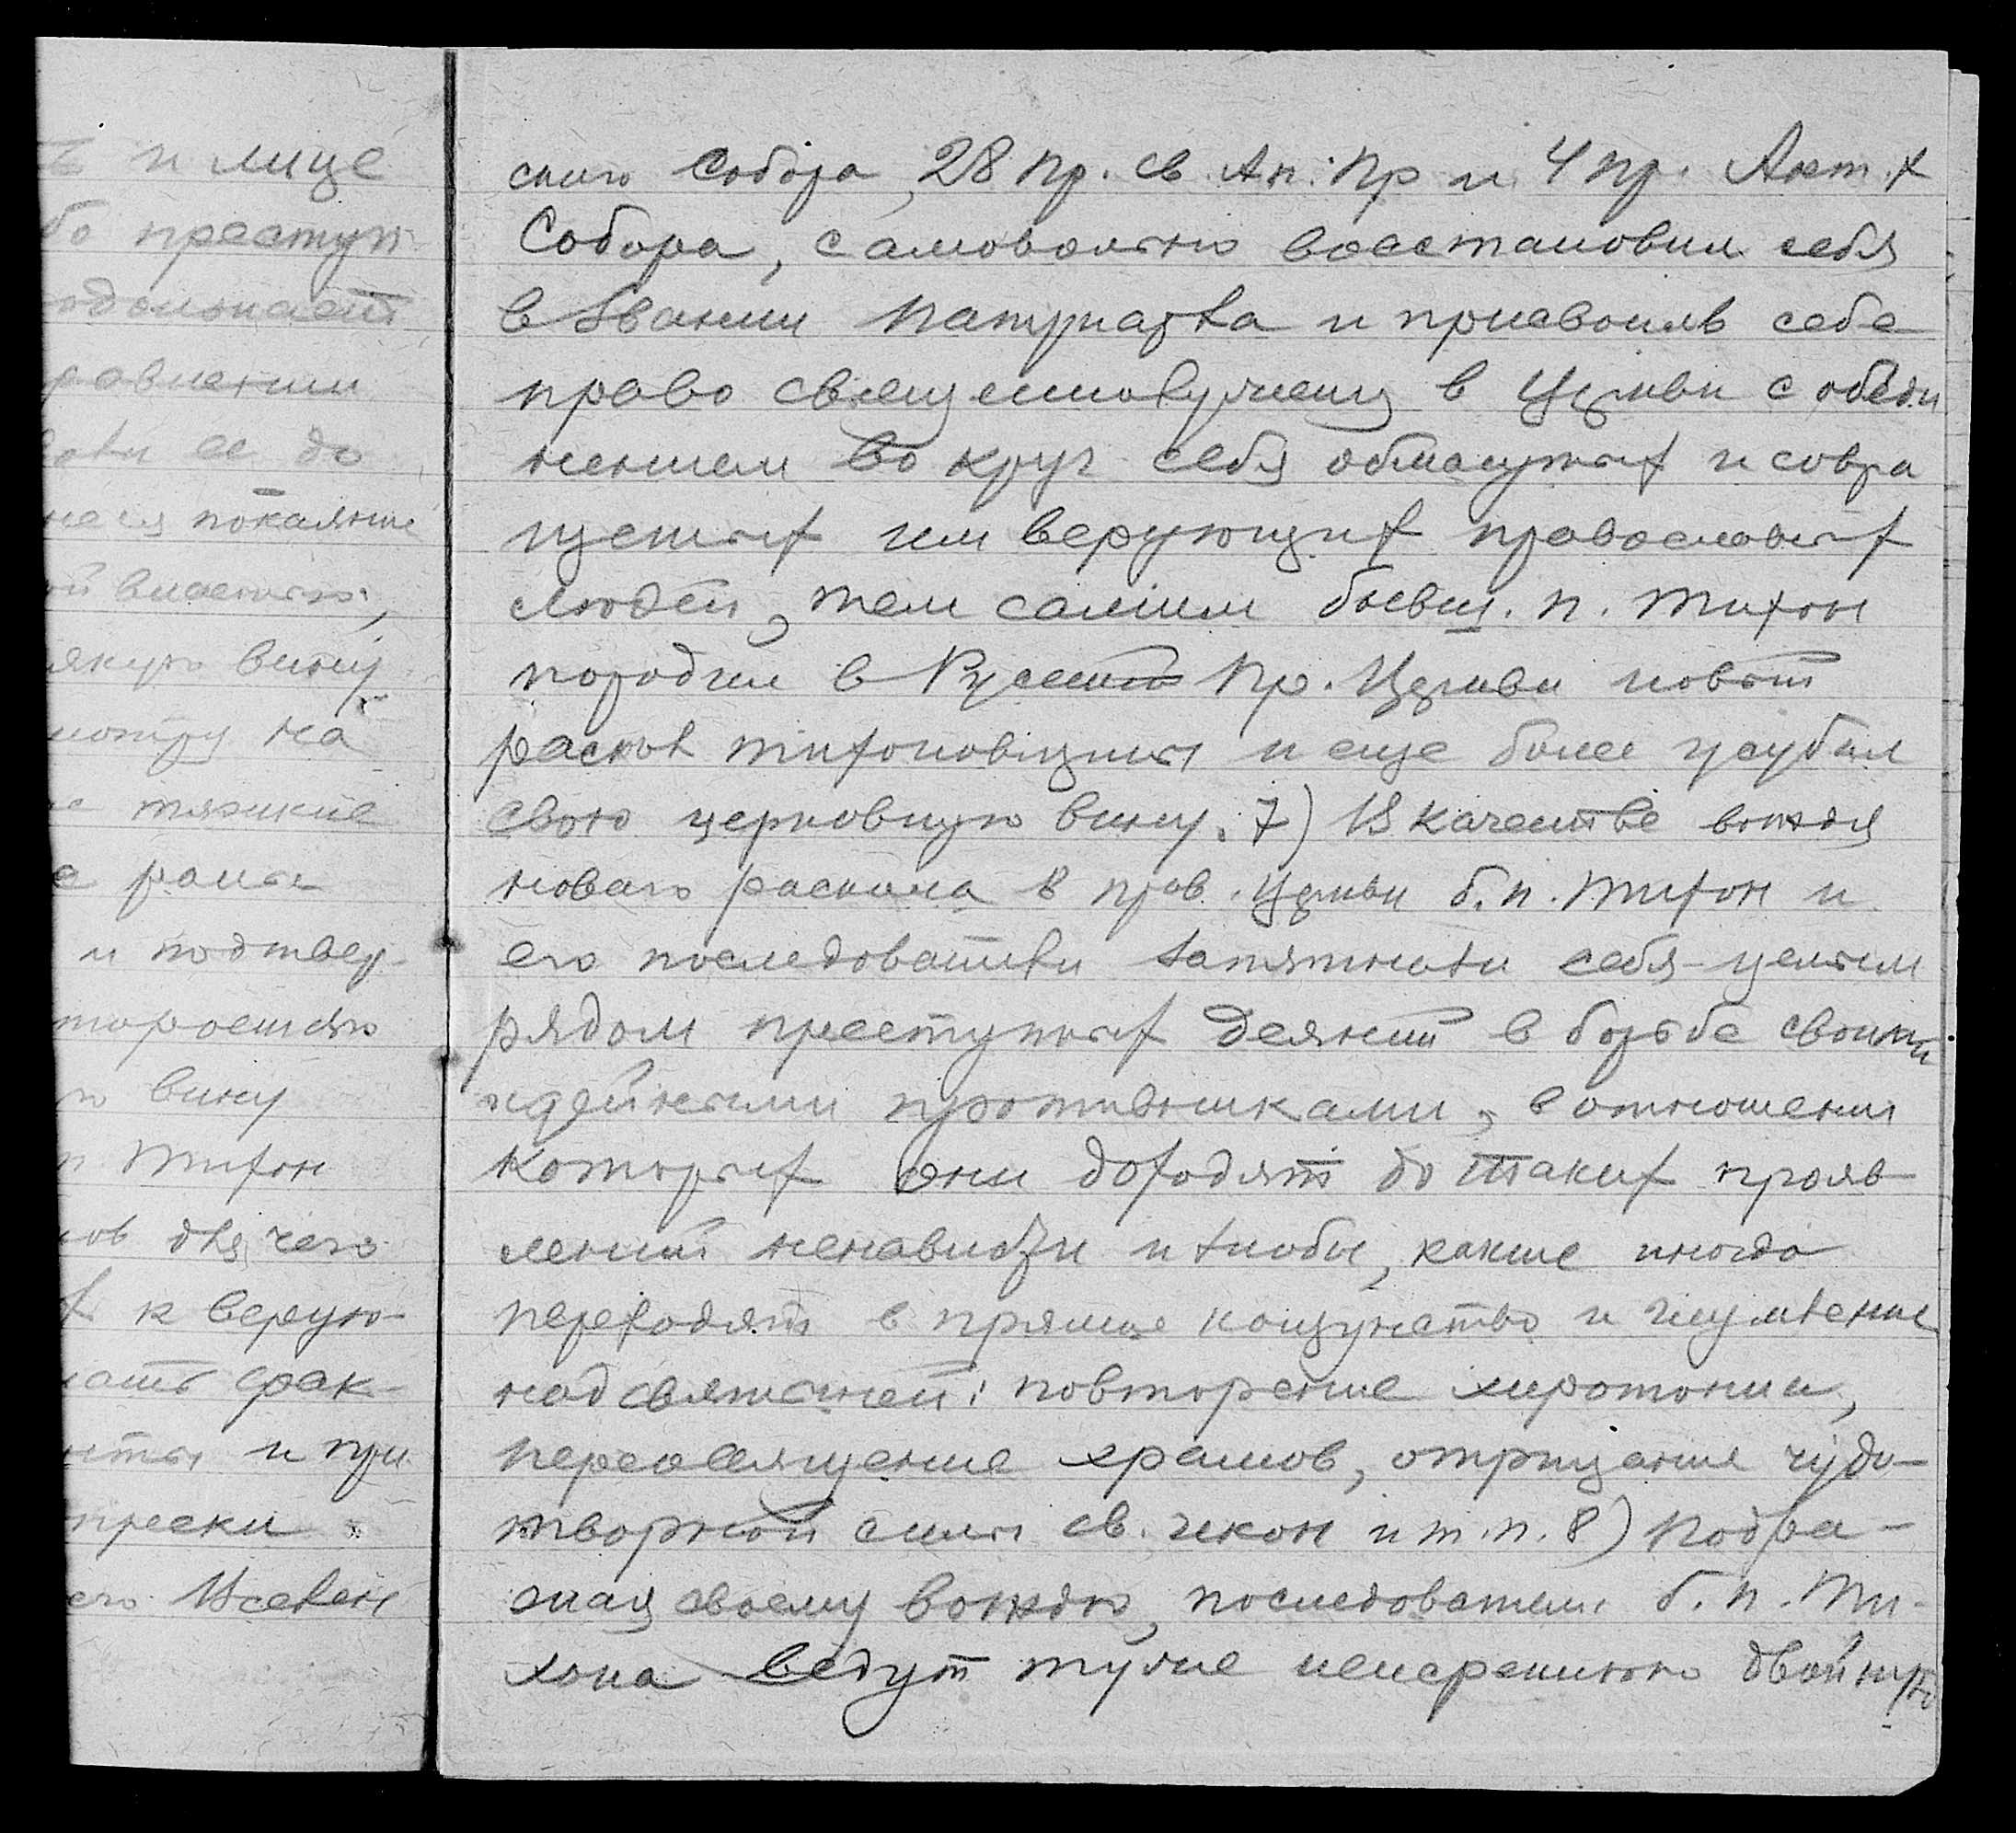 ь и лице
бо преступ
одолжает
равлении
ее до
покаяние
ой властью,
якую вину
мотру на
тяжкие
е раны
и подтвер-
вину
п Тихон
ов для чего
х к верую-
фак-
и при
преки
его Вселен
ского Собора, 28 пр. св. Ап. Пр и 4 пр. Ант. х
Собора, самовольно восстановил себя
в звании Патриарха и присвоив себе
право священнослужения в Церкви с объеди
нением во круг себя обманутых и совра
щенных им верующих православных
людей, тем самым бывш. п. Тихон
породил в Русской Пр. Церкви новый
раскол тихоновщины и еще более усугубил
свою церковную вину. 7) В качестве вождя
новаго раскола в прав. Церкви б. п. Тихон и
его последователи запятнали себя целым
рядом преступных деяний в борьбе своими
идейными противниками, в отношении
которых они доходят до таких прояв
лений ненависти и злобы, какие иногда
переходят в прямое кощунство и глумление
над святыней: повторение хиротонии,
переосвящение храмов, отрицание чудо-
творной силы св. икон и т. п. 8) Подра-
жая своему вождю, последователи б. п. Ти-
хона ведут туже неискреннюю двойную